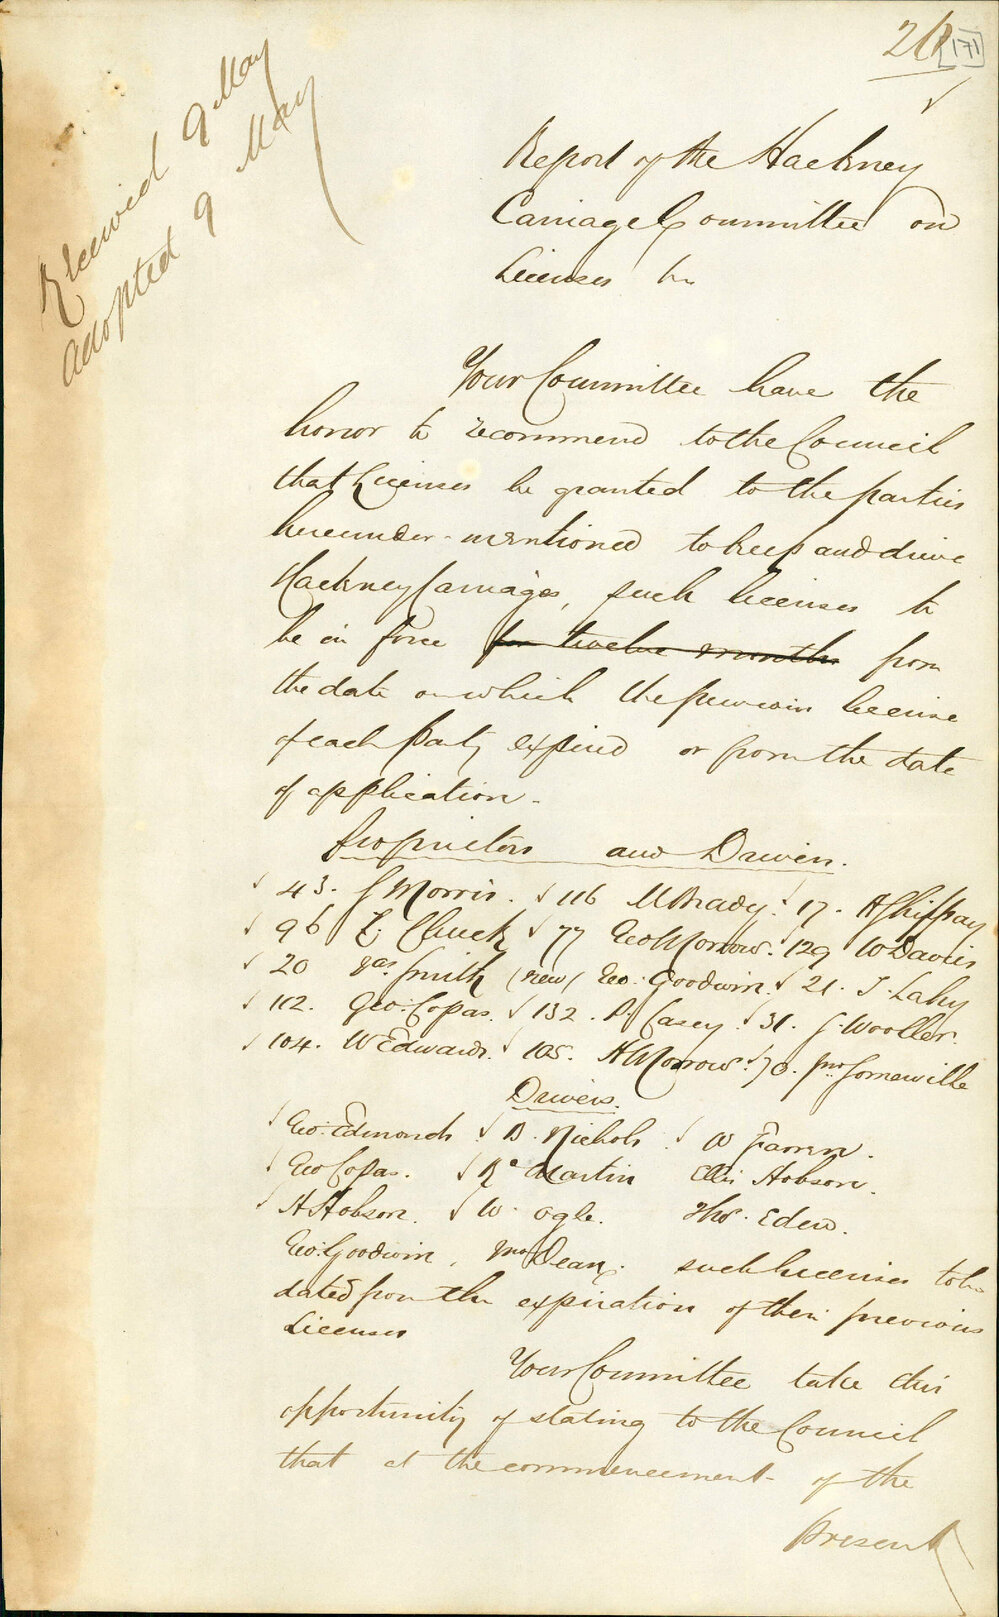 [171]
Received 9 May
Adopted 9 May
Report of the Hackney
Carriage Committee on
Licenses &c
Your Committee have the
honor to recommend to the Council
that Licenses be granted to the parties
hereunder-mentioned to keep and drive
Hackney Carriages, such licenses to
be in force for twelve months from
the date on which the previous license
of each party expired or from the date
of application -
Proprietors and Drivers.
43. J Morris. 116 M Brady. 17. A Shippay
96 Z. Chuck 77 Geo Morrow. 129 W Davies
20 Jas Smith (new) Geo: Goodwin. 21. J. Lahy
112. Geo: Copas. 132. P. Casey. 31. J. Wooller.
104. W Edwards. 105. H Morrow. 70. Jno Somerville
Drivers.
Geo: Edmonds B. Nichols. W Farren.
Geo Copas. Rd Martin Ellis Hobson.
H Hobson. W. Ogle. Thos. Eden.
Geo: Goodwin, Dean. such licenses to be
dated from the expiration of their previous
Licenses
Your Committee take this
opportunity of stating to the Council
that at the commencement of the
present